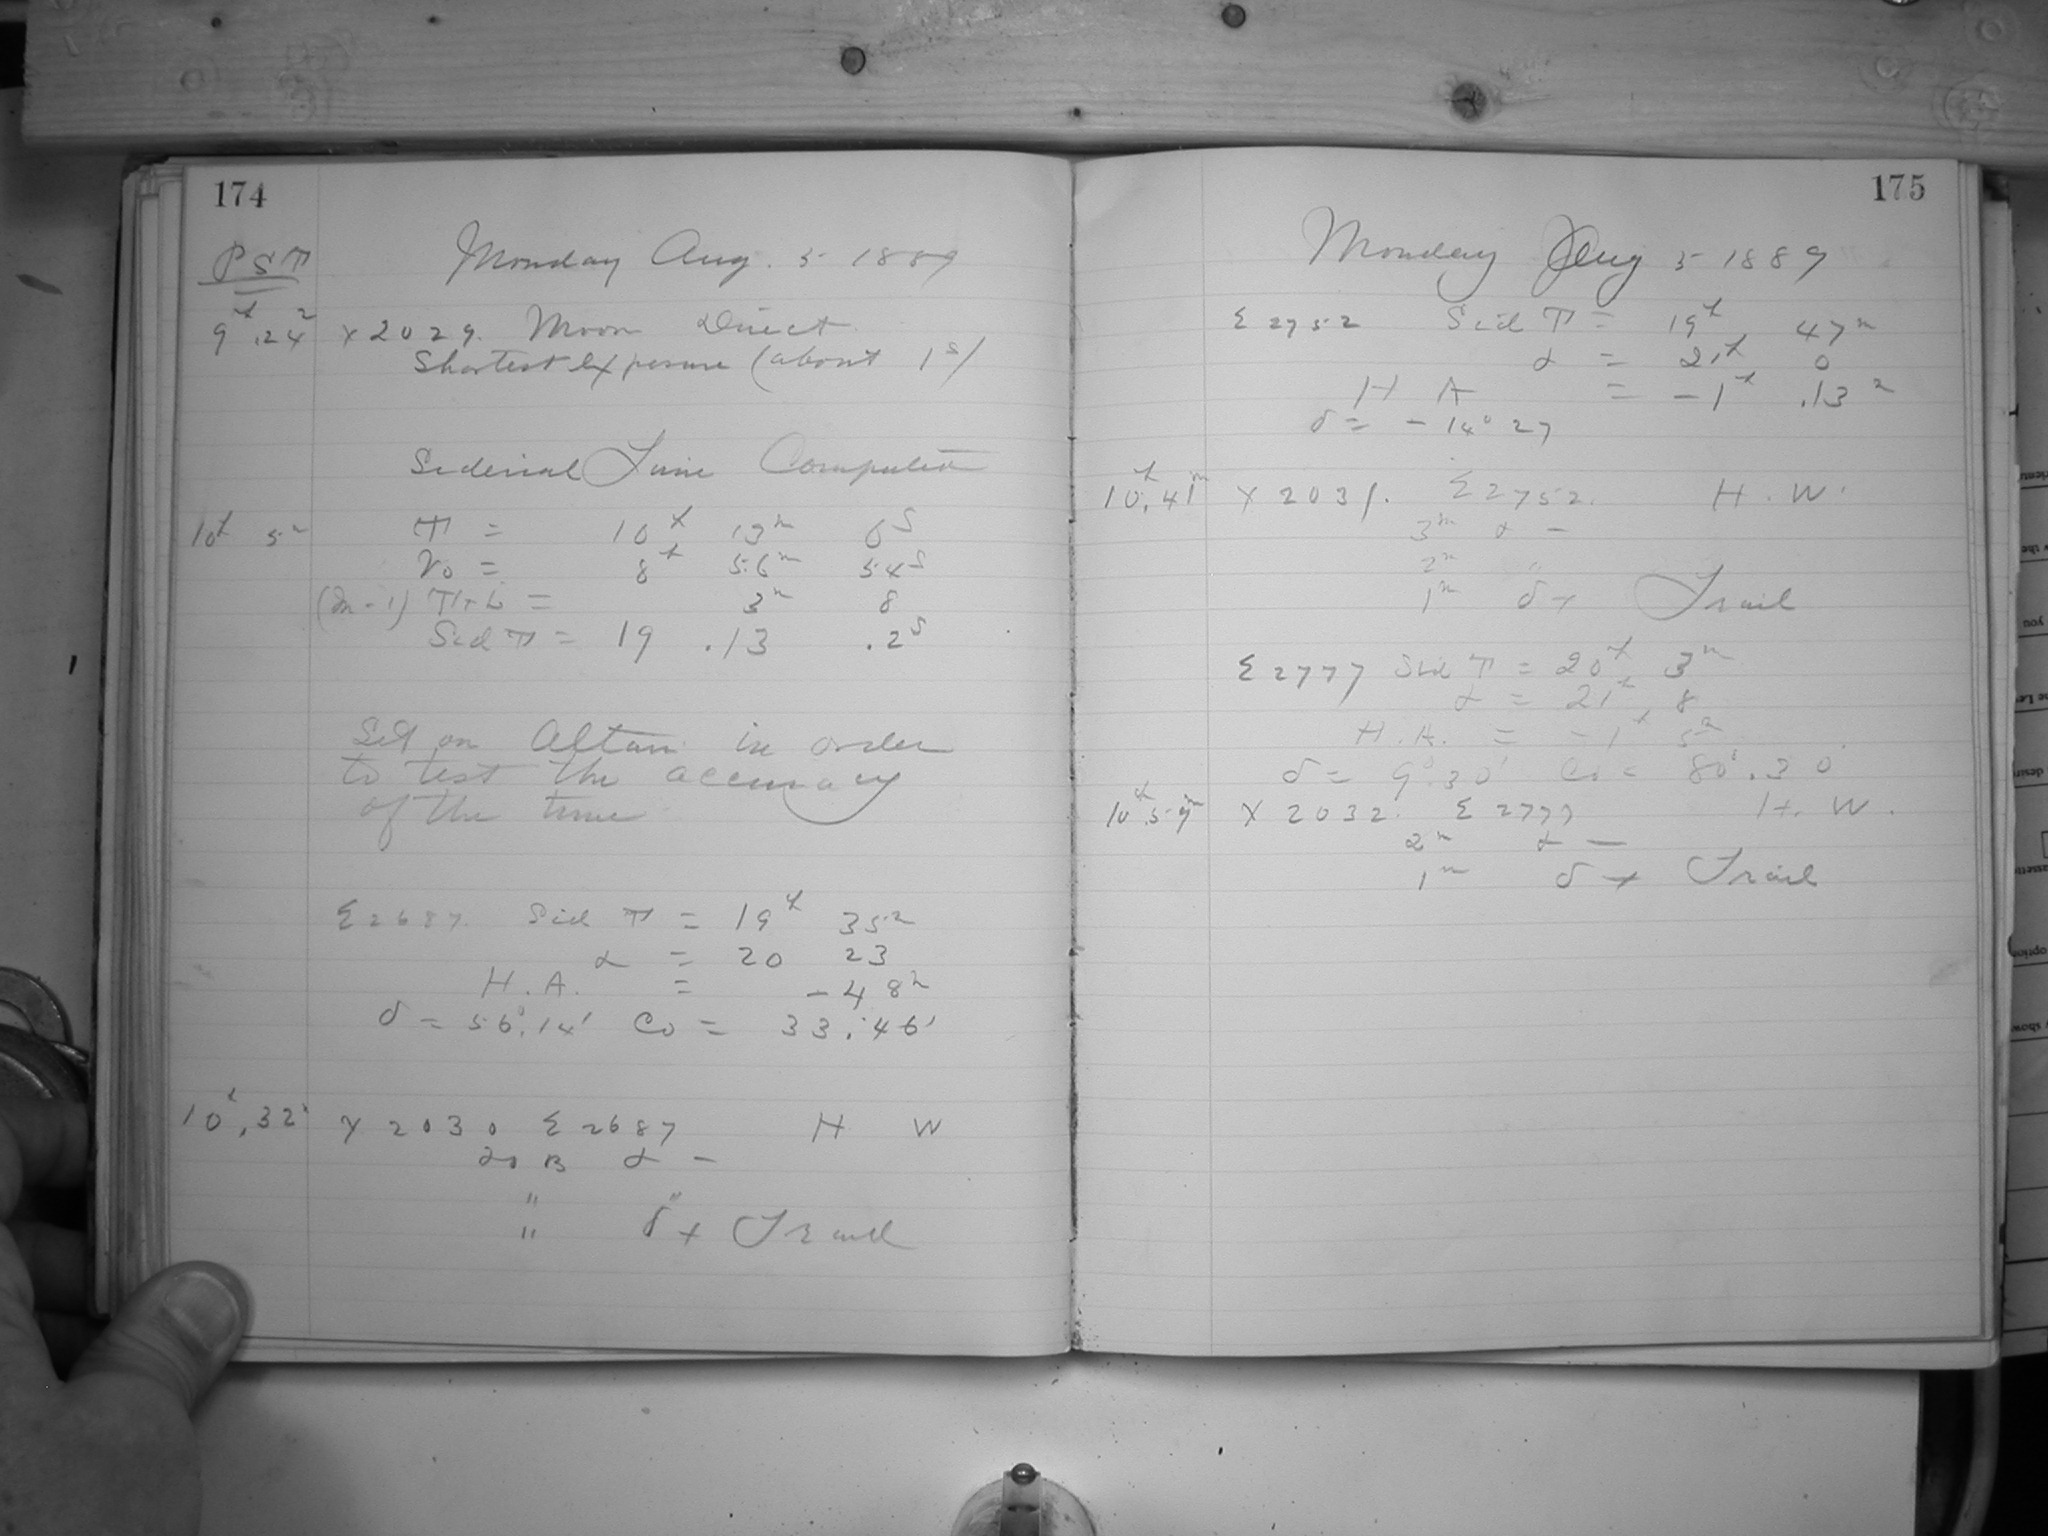 174
P S T
Monday Aug. 5 1889
9h.24m X 2029. Moon Direct
Shortest Exposure (about 1s)
Siderial Time Computed
10h 5m T = 10h 13m 6s
V0 = 8h 56m 54s
(m-1) T+L = 3m 8
Sid T = 19 .13 .2s
Set on Altair in order
to test the accuracy
of the time
Σ2687. Sid T = 19h 35m
α = 20 23
H.A. = -48m
δ = 56°.14' Co = 33.°46'
10h.32m X 2030 Σ 2687 H W
α -
" "
" δ + Trail
175
Monday Aug 5 1889
Σ 2752 Sid T = 19h 47m
α = 21h 0
H A = -1h .13m
δ = -14° 27
10h.41m X 2031. Σ2752. H.W.
3m α -
2m "
1m δ + Trail
Σ 2777 Sid T = 20h 3m
α = 21h 8
H.A. = -1h 5m
δ = 9°.30' Co = 80°.30
10h.59m X 2032. Σ 2777 H. W.
2m α -
1m δ + Trail